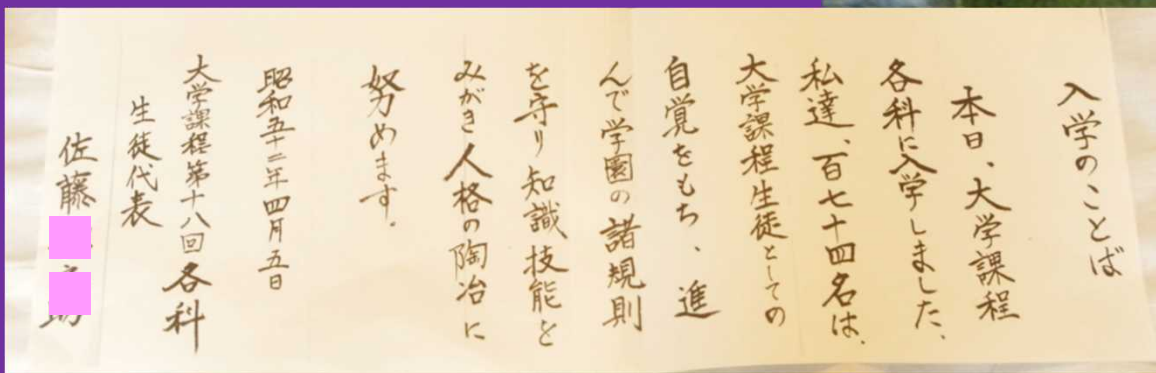 入学のことば
本日、大学課程
各科に入学しました、
私達、百七十四名は、
大学課程生徒としての
自覚をもち、進
んで学園の諸規則
を守り知識技能を
みがき人格の陶冶に
努めます。
昭和五十二年四月五日
大学課程第十八回各科
生徒代表
佐藤